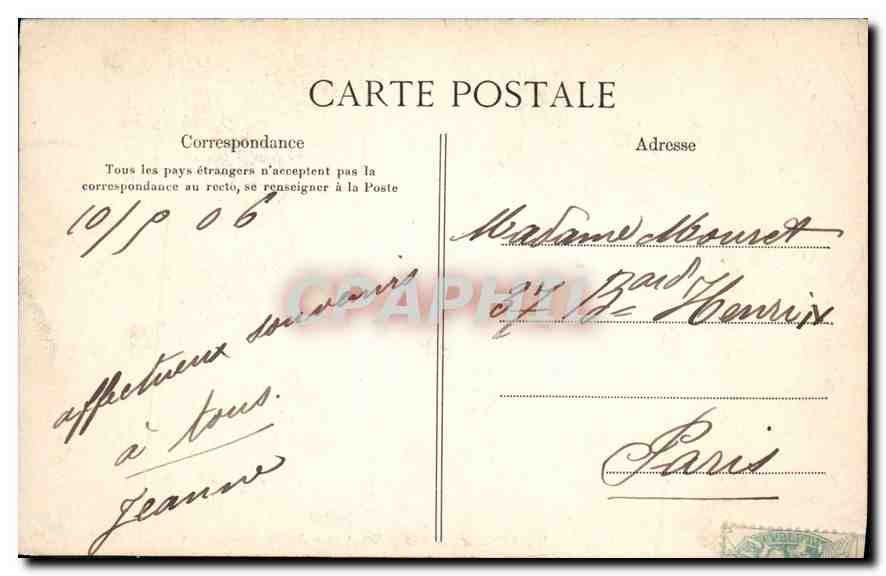 CARTE POSTALE
Correspondance
Tous les pays étrangers n'acceptent pas la
correspondance au recto, se renseigner à la Poste
10/9 06
affectueux souvenirs
à tous.
Jeanne
Adresse
Madame Mouret
37 Bard Henri IV
Paris
CPAPHIL